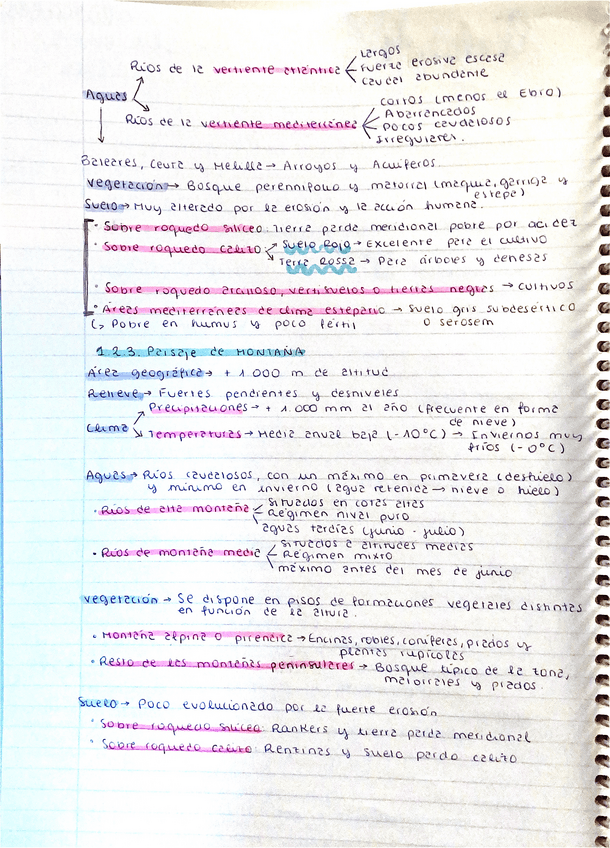 Largos
Ríos de la vertiente atlántica Fuerza erosiva escasa
Caudal abundante
Aguas
Cortos (menos el Ebro)
Abarrancados
Ríos de la vertiente mediterránea Pocos caudalosos
Irregulares.
Baleares, Ceuta y Melilla → Arroyos y Acuíferos.
Vegetación → Bosque perennifolio y matorral (maquia, garriga y
estepa)
Suelo → Muy alterado por la erosión y la acción humana.
· Sobre roquedo silíceo: tierra parda meridional pobre por acidez
· Sobre roquedo calizo Suelo Rojo → Excelente para el cultivo
Terra Rossa → Para árboles y dehesas
· Sobre roquedo arcilloso, vertisuelos o tierras negras → cultivos
· Áreas mediterráneas de clima estepario → Suelo gris subdesértico
↳ Pobre en humus y poco fértil o serosem
1.2.3. Paisaje de MONTAÑA
Área geográfica → + 1.000 m de altitud
Relieve → Fuertes pendientes y desniveles
Precipitaciones → + 1.000 mm al año (frecuente en forma
de nieve)
Clima
Temperaturas → Media anual baja (-10°C) → Inviernos muy
fríos (-0°C)
Aguas → Ríos caudalosos, con un máximo en primavera (deshielo)
y mínimo en invierno (agua retenida → nieve o hielo)
· Ríos de alta montaña Situados en cotas altas
Régimen nival puro
aguas tardías (junio-julio)
· Ríos de montaña media Situados a altitudes medias
Régimen mixto
máximo antes del mes de junio
Vegetación → Se dispone en pisos de formaciones vegetales distintas
en función de la altura.
· Montaña alpina o pirenaica → Encinas, robles, coníferas, prados y
plantas rupícolas
· Resto de las montañas peninsulares → Bosque típico de la zona,
matorrales y prados.
Suelo → Poco evolucionado por la fuerte erosión
· Sobre roquedo silíceo: Rankers y tierra parda meridional
· Sobre roquedo calizo: Renzinas y suelo pardo calizo